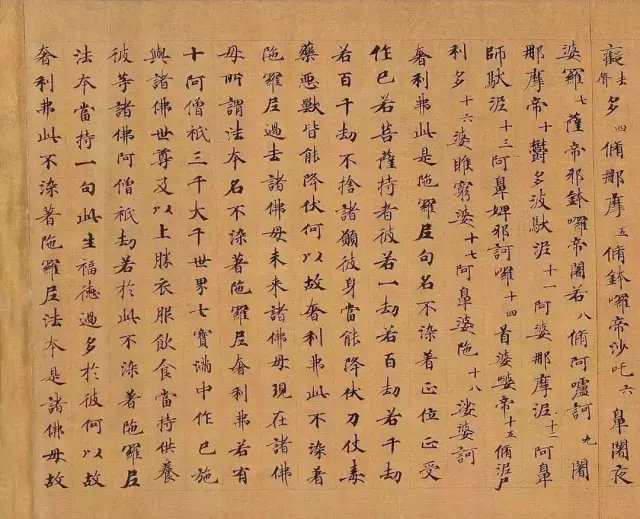 癡去倂多四脩那摩五脩鉢囉帝沙吒六鼻闍夜
婆羅七薩帝邪鉢囉帝闍若八脩阿嚧訶九闍
那摩帝十鬱多波馱泥十一阿婆那摩泥十二阿鼻
師馱泥十三阿鼻婢邪訶囉十四首婆婆帝十五脩泥尸
利多十六婆睢窮婆十七阿鼻婆陁十八娑婆訶
奢利弗此是陁羅尼句名不染著正位正受
作已若菩薩持者彼若一劫若百劫若千劫
若百千劫不捨諸願彼身當能降伏刀仗毒
藥惡獸皆能降伏何以故奢利弗此不染著
陁羅尼過去諸佛母未來諸佛母現在諸佛
母所謂法本名不染著陁羅尼奢利弗若有
十阿僧祇三千大千世界七寶滿中作已施
與諸佛世尊及以上勝衣服飲食當持供養
彼等諸佛阿僧祇劫若於此不染著陁羅尼
法本當持一句此生福德過多於彼何以故
奢利弗此不染著陁羅尼法本是諸佛母故